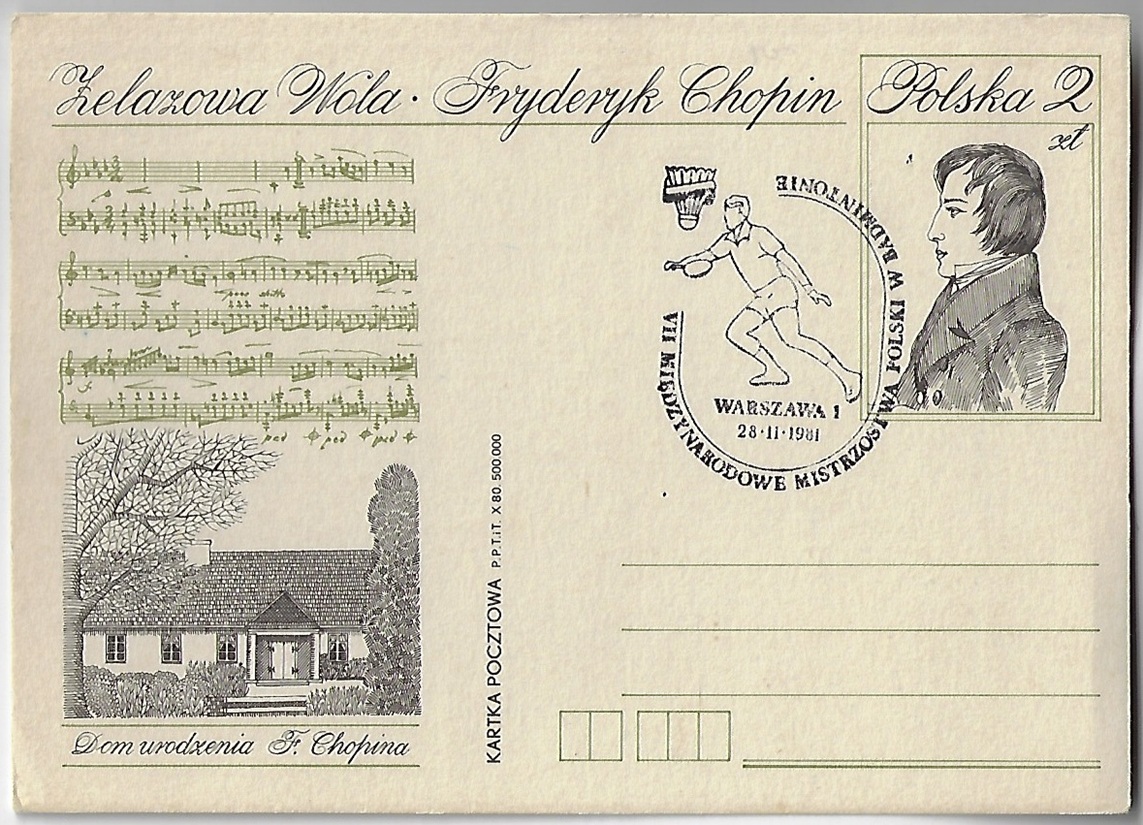 Żelazowa Wola · Fryderyk Chopin
Polska 2
zł
VII MIĘDZYNARODOWE MISTRZOSTWA POLSKI W BADMINTONIE
WARSZAWA 1
28·11·1981
ped ped ped
KARTKA POCZTOWA P.P.T.iT. X 80. 500.000
Dom urodzenia F. Chopina